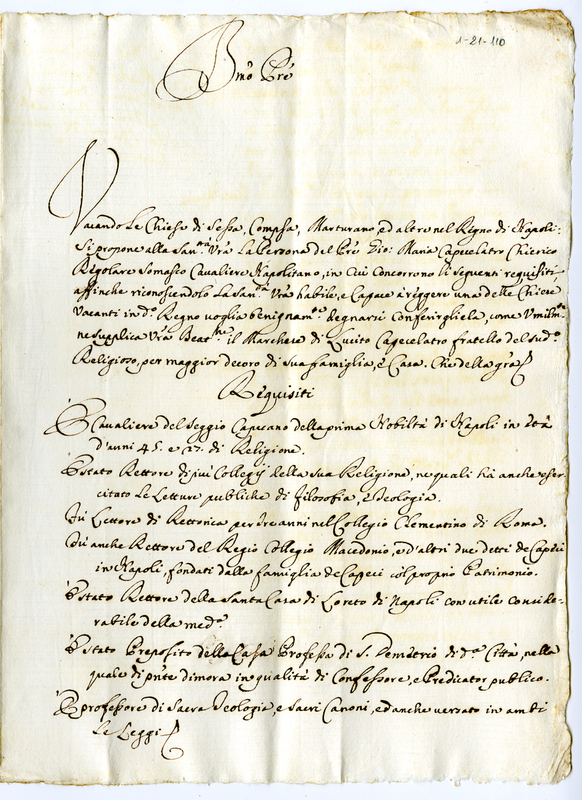 1-21-110
Bmo Pre
Vacando Le Chiese di Sessa, Compsa, Marturano, ed altre nel Regno di Napoli:
Si propone alla San.tà Vrã La Persona del Pre Gio: Maria Capecelatro Chierico
Regolare Somasco Cavaliere Napolitano, in Cui Concorrono li seguenti requisiti
affinche riconoscendolo La San.tà Vrã habile, e Capace à reggere una delle Chiese
Vacanti in d.º Regno voglia benignam.te degnarsi Conferirgliela, come Umilm.te
ne supplica Vrã Beat.ne il Marchese di Lucito Capecelatro fratello del sud.º
Religioso, per maggior decoro di Sua famiglia, e Casa. Che della grã
Requisiti
È Cavaliere del Seggio Capuano della prima Nobiltà di Napoli in età
d'anni 45. e 27. di Religione.
È stato Rettore di più Collegij della sua Religione, ne quali hà anche eser-
citato Le Letture publiche di filosofia, e Teologia.
Fù Lettore di Rettorica per tre anni nel Collegio Clementino di Roma.
Fù anche Rettore del Regio Collegio Macedonio, e d'altri due detti de Capeci
in Napoli, fondati dalla famiglia de Capeci col proprio Patrimonio.
È stato Rettore della Santa Casa di Loreto di Napoli con utile conside-
rabile della med.ª
È stato Preposito della Casa Professa di S. Demetrio di d.ª Città, nella
quale di pñte dimora in qualità di Confessore, e Predicator publico.
È professore di Sacra Teologia, e Sacri Canoni, ed anche versato in ambi
Le Leggi